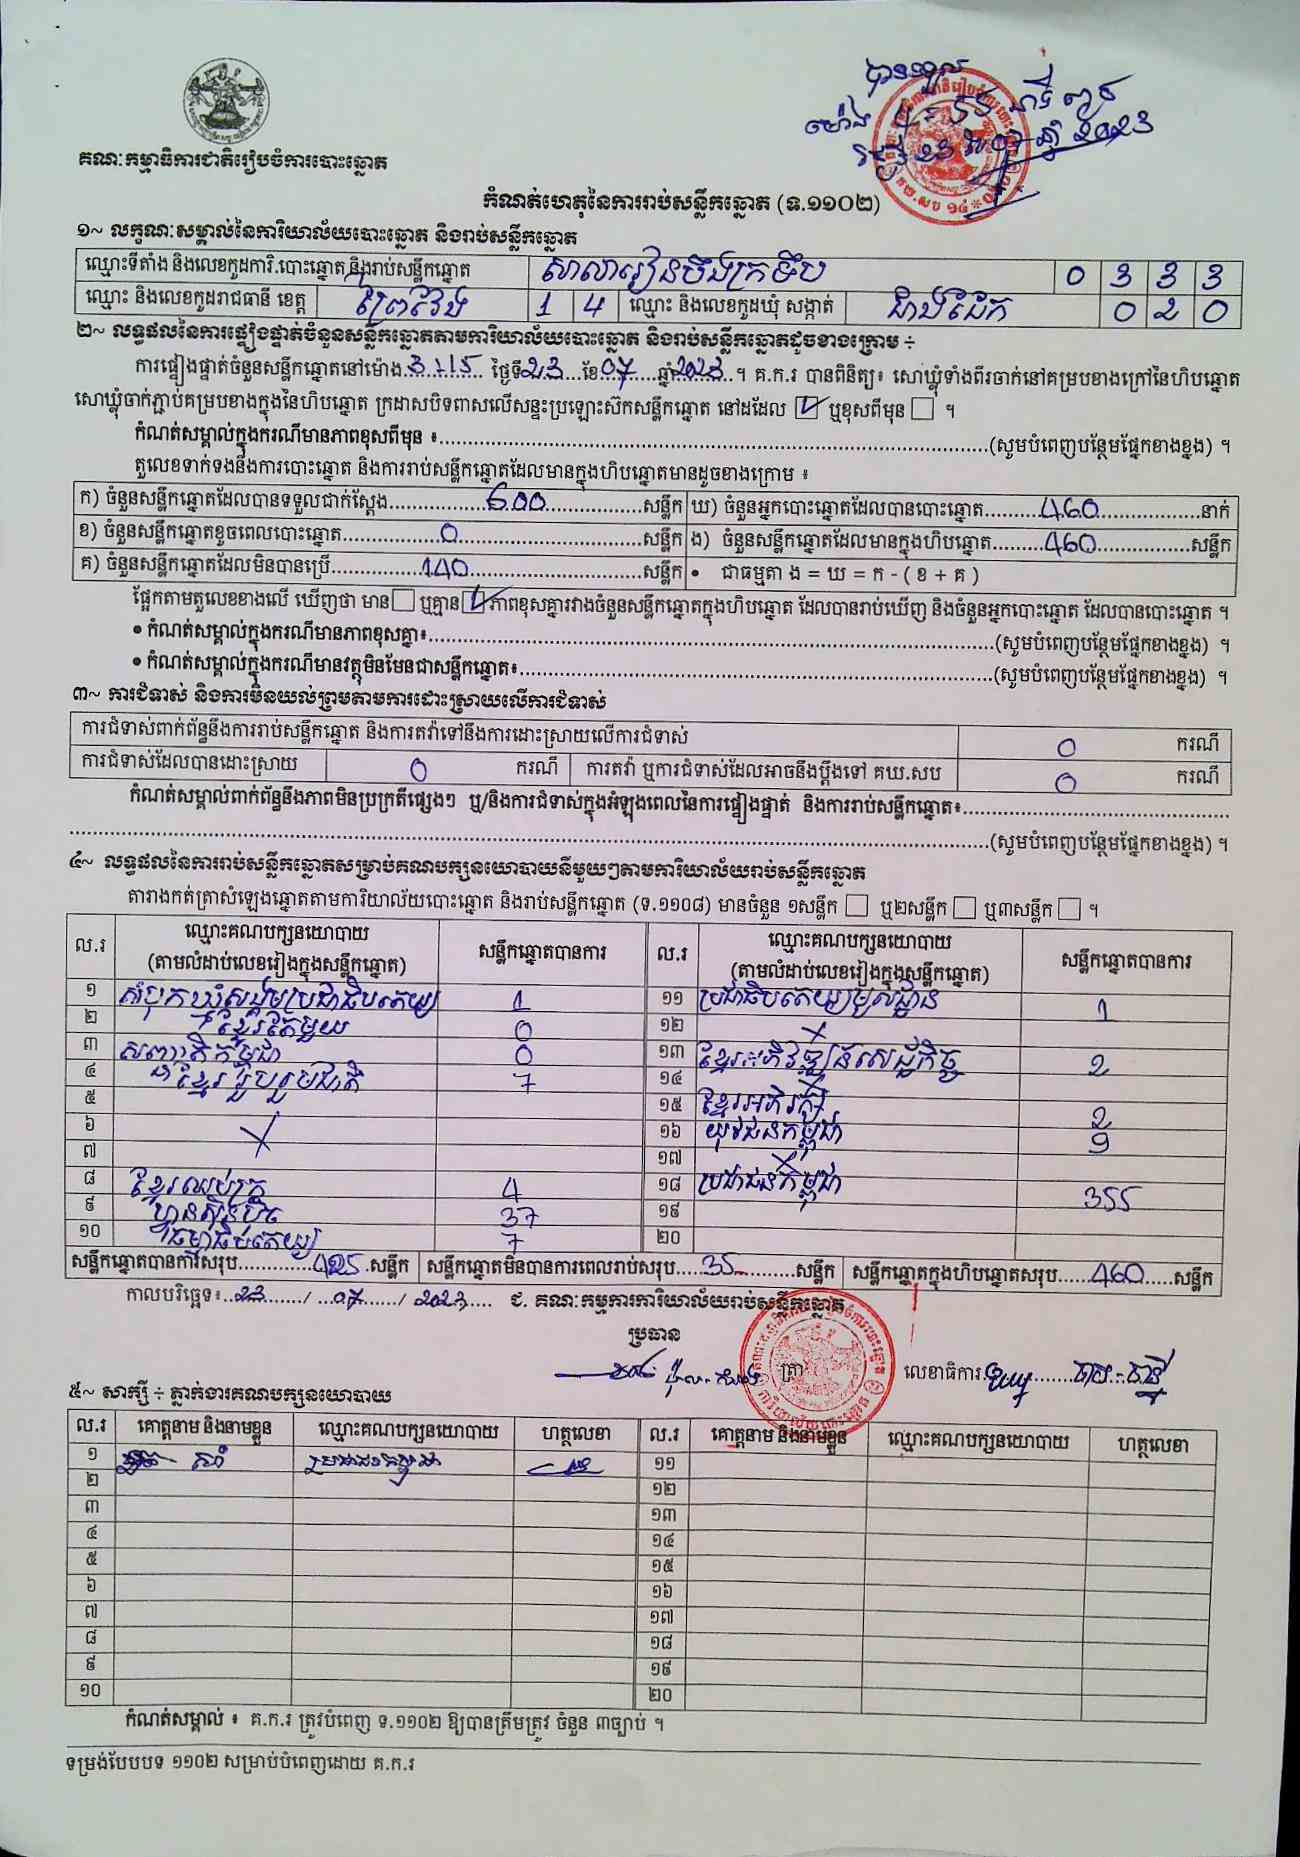 បានទទួល
ម៉ោង
ថ្ងៃ 23 ខែ 07 ឆ្នាំ 2023
គណៈកម្មាធិការជាតិរៀបចំការបោះឆ្នោត
កំណត់ហេតុនៃការរាប់សន្លឹកឆ្នោត (ទ.១១០២)
១~ លក្ខណៈសម្គាល់នៃការិយាល័យបោះឆ្នោត និងរាប់សន្លឹកឆ្នោត
ឈ្មោះទីតាំង និងលេខកូដការិ.បោះឆ្នោត និងរាប់សន្លឹកឆ្នោត សាលារៀនបឹងក្រទឹប 0 3 3 3
ឈ្មោះ និងលេខកូដរាជធានី ខេត្ត ព្រៃវែង 1 4 ឈ្មោះ និងលេខកូដឃុំ សង្កាត់ ជាងដែក 0 2 0
២~ លទ្ធផលនៃការផ្ទៀងផ្ទាត់ចំនួនសន្លឹកឆ្នោតតាមការិយាល័យបោះឆ្នោត និងរាប់សន្លឹកឆ្នោតដូចខាងក្រោម ÷
ការផ្ទៀងផ្ទាត់ចំនួនសន្លឹកឆ្នោតនៅម៉ោង 3:15 ថ្ងៃទី 23 ខែ 07 ឆ្នាំ 2023 ។ គ.ក.រ បានពិនិត្យ៖ សោឃ្លុំទាំងពីរចាក់នៅគម្របខាងក្រៅនៃហិបឆ្នោត
សោឃ្លុំចាក់ភ្ជាប់គម្របខាងក្នុងនៃហិបឆ្នោត ក្រដាសបិទពាសលើសន្ទះប្រឡោះស៊កសន្លឹកឆ្នោត នៅដដែល ឬខុសពីមុន ។
កំណត់សម្គាល់ក្នុងករណីមានភាពខុសពីមុន ៖ (សូមបំពេញបន្ថែមផ្នែកខាងខ្នង) ។
តួលេខទាក់ទងនឹងការបោះឆ្នោត និងការរាប់សន្លឹកឆ្នោតដែលមានក្នុងហិបឆ្នោតមានដូចខាងក្រោម ៖
ក) ចំនួនសន្លឹកឆ្នោតដែលបានទទួលជាក់ស្តែង 600 សន្លឹក ឃ) ចំនួនអ្នកបោះឆ្នោតដែលបានបោះឆ្នោត 460 នាក់
ខ) ចំនួនសន្លឹកឆ្នោតខូចពេលបោះឆ្នោត 0 សន្លឹក ង) ចំនួនសន្លឹកឆ្នោតដែលមានក្នុងហិបឆ្នោត 460 សន្លឹក
គ) ចំនួនសន្លឹកឆ្នោតដែលមិនបានប្រើ 140 សន្លឹក • ជាធម្មតា ង = ឃ = ក - ( ខ + គ )
ផ្អែកតាមតួលេខខាងលើ ឃើញថា មាន ឬគ្មាន ភាពខុសគ្នារវាងចំនួនសន្លឹកឆ្នោតក្នុងហិបឆ្នោត ដែលបានរាប់ឃើញ និងចំនួនអ្នកបោះឆ្នោត ដែលបានបោះឆ្នោត ។
• កំណត់សម្គាល់ក្នុងករណីមានភាពខុសគ្នា៖ (សូមបំពេញបន្ថែមផ្នែកខាងខ្នង) ។
• កំណត់សម្គាល់ក្នុងករណីមានវត្ថុមិនមែនជាសន្លឹកឆ្នោត៖ (សូមបំពេញបន្ថែមផ្នែកខាងខ្នង) ។
៣~ ការជំទាស់ និងការមិនយល់ព្រមតាមការដោះស្រាយលើការជំទាស់
ការជំទាស់ពាក់ព័ន្ធនឹងការរាប់សន្លឹកឆ្នោត និងការតវ៉ាទៅនឹងការដោះស្រាយលើការជំទាស់ 0 ករណី
ការជំទាស់ដែលបានដោះស្រាយ 0 ករណី ការតវ៉ា ឬការជំទាស់ដែលអាចនឹងប្តឹងទៅ គឃ.សប 0 ករណី
កំណត់សម្គាល់ពាក់ព័ន្ធនឹងភាពមិនប្រក្រតីផ្សេងៗ ឬ/និងការជំទាស់ក្នុងអំឡុងពេលនៃការផ្ទៀងផ្ទាត់ និងការរាប់សន្លឹកឆ្នោត៖
(សូមបំពេញបន្ថែមផ្នែកខាងខ្នង) ។
៤~ លទ្ធផលនៃការរាប់សន្លឹកឆ្នោតសម្រាប់គណបក្សនយោបាយនីមួយៗតាមការិយាល័យរាប់សន្លឹកឆ្នោត
តារាងកត់ត្រាសំឡេងឆ្នោតតាមការិយាល័យបោះឆ្នោត និងរាប់សន្លឹកឆ្នោត (ទ.១១០៨) មានចំនួន ១សន្លឹក ឬ២សន្លឹក ឬ៣សន្លឹក ។
ល.រ ឈ្មោះគណបក្សនយោបាយ (តាមលំដាប់លេខរៀងក្នុងសន្លឹកឆ្នោត) សន្លឹកឆ្នោតបានការ ល.រ ឈ្មោះគណបក្សនយោបាយ (តាមលំដាប់លេខរៀងក្នុងសន្លឹកឆ្នោត) សន្លឹកឆ្នោតបានការ
១ សំបុកឃ្មុំសង្គមប្រជាធិបតេយ្យ 1 ១១ ប្រជាធិបតេយ្យមូលដ្ឋាន 1
២ ខ្មែរតែមួយ 0 ១២ X
៣ សញ្ជាតិកម្ពុជា 0 ១៣ ខ្មែរអភិវឌ្ឍន៍សេដ្ឋកិច្ច 2
៤ ខ្មែររួបរួមជាតិ 7 ១៤
៥ ១៥ ខ្មែរអភិរក្ស 2
៦ X ១៦ យុវជនកម្ពុជា 9
៧ ១៧ X
៨ ខ្មែរឈប់ក្រ 4 ១៨ ប្រជាជនកម្ពុជា 355
៩ ហ្វ៊ុនស៊ិនប៉ិច 37 ១៩
១០ ធម្មាធិបតេយ្យ 7 ២០
សន្លឹកឆ្នោតបានការសរុប 425 សន្លឹក សន្លឹកឆ្នោតមិនបានការពេលរាប់សរុប 35 សន្លឹក សន្លឹកឆ្នោតក្នុងហិបឆ្នោតសរុប 460 សន្លឹក
កាលបរិច្ឆេទ៖ 23 / 07 / 2023 ជ. គណៈកម្មការការិយាល័យរាប់សន្លឹកឆ្នោត
ប្រធាន
ត្រា លេខាធិការ
៥~ សាក្សី ÷ ភ្នាក់ងារគណបក្សនយោបាយ
ល.រ គោត្តនាម និងនាមខ្លួន ឈ្មោះគណបក្សនយោបាយ ហត្ថលេខា ល.រ គោត្តនាម និងនាមខ្លួន ឈ្មោះគណបក្សនយោបាយ ហត្ថលេខា
១ ប្រជាជនកម្ពុជា ១១
២ ១២
៣ ១៣
៤ ១៤
៥ ១៥
៦ ១៦
៧ ១៧
៨ ១៨
៩ ១៩
១០ ២០
កំណត់សម្គាល់ ៖ គ.ក.រ ត្រូវបំពេញ ទ.១១០២ ឱ្យបានត្រឹមត្រូវ ចំនួន ៣ច្បាប់ ។
ទម្រង់បែបបទ ១១០២ សម្រាប់បំពេញដោយ គ.ក.រ